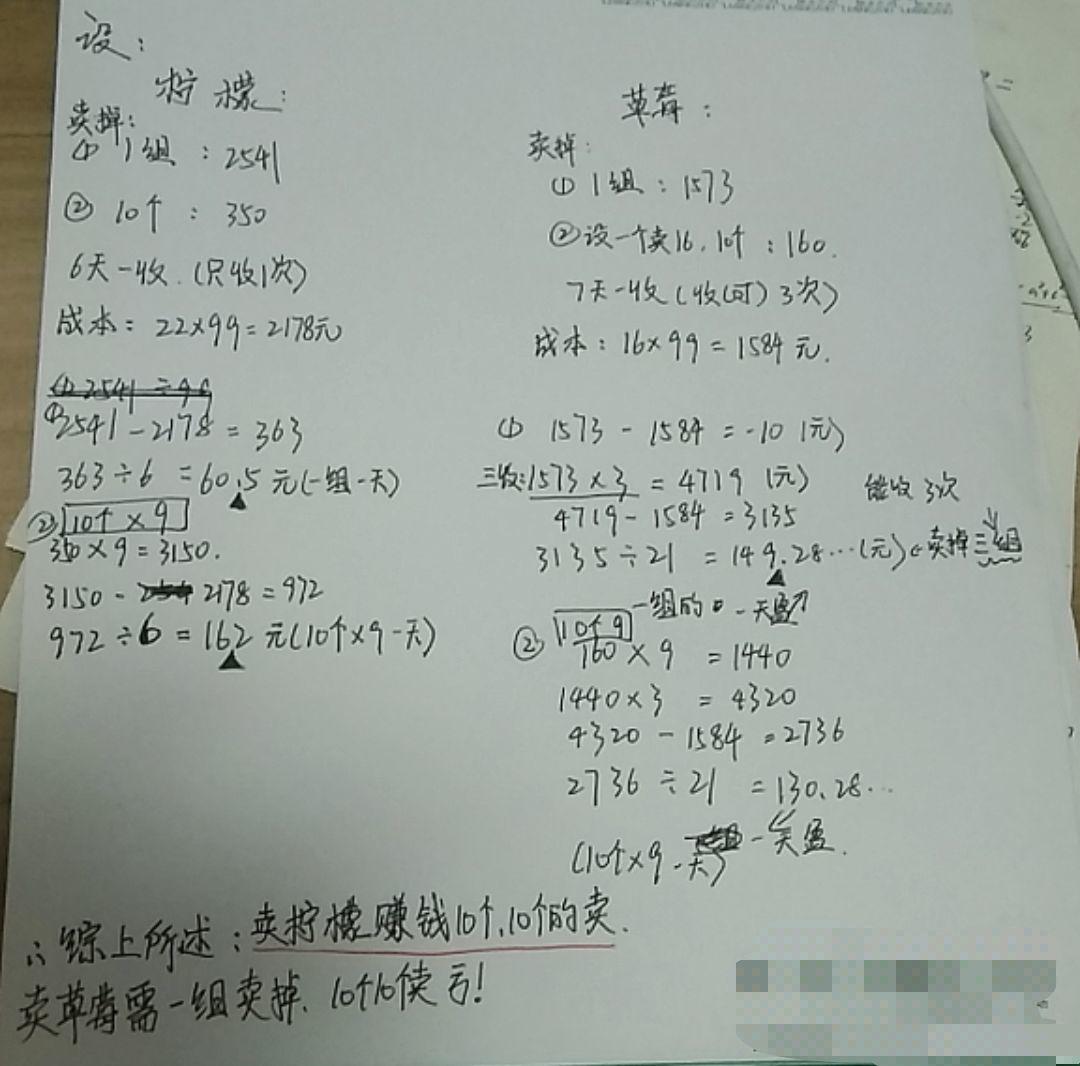 设：
柠檬：
卖掉：
① 1组：2541
② 10个：350
6天一收.（只收1次）
成本：22×99=2178元
① 2541÷99
① 2541-2178=363
363÷6=60.5元(一组一天)
② 10个×9
350×9=3150.
3150-2178=972
972÷6=162元(10个×9一天)
草莓：
卖掉：
① 1组：1573
②设一个卖16.10个：160.
7天一收(收(可)3次)
成本：16×99=1584元.
① 1573-1584=-10(元)
三收:1573×3=4719(元) 能收3次
4719-1584=3135
3135÷21=149.28…(元)←卖掉三组
一组的 一天盈
② 10个9
160×9=1440
1440×3=4320
4320-1584=2736
2736÷21=130.28…
(10个×9一天) 一天盈.
∴综上所述：卖柠檬赚钱10个,10个的卖.
卖草莓需一组卖掉.10个10个卖亏!